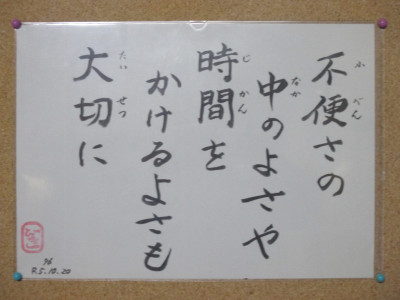 不便さの
中のよさや
時間を
かけるよさも
大切に
ふべん
なか
じかん
たいせつ
R5.10.20